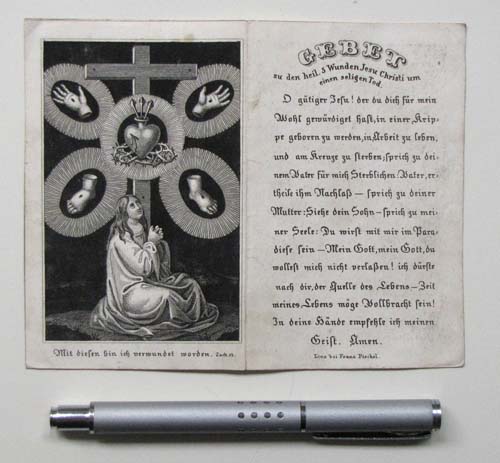 Mit diesen bin ich verwundet worden. Zach. 13.
GEBET
zu den heil. 5 Wunden Jesu Christi um
einen seligen Tod.
O gütiger Jesu! der du dich für mein
Wohl gewürdiget hast, in einer Krip-
pe geboren zu werden, in Arbeit zu leben,
und am Kreuze zu sterben; sprich zu dei-
nem Vater für mich Sterblichen: Vater, er-
theile ihm Nachlaß — sprich zu deiner
Mutter: Siehe dein Sohn — sprich zu mei-
ner Seele: Du wirst mit mir im Para-
diese sein — Mein Gott, mein Gott, du
wollest mich nicht verlaßen! ich dürste
nach dir, der Quelle des Lebens — Zeit
meines Lebens möge Vollbracht sein!
In deine Hände empfehle ich meinen
Geist. Amen.
bei Franz